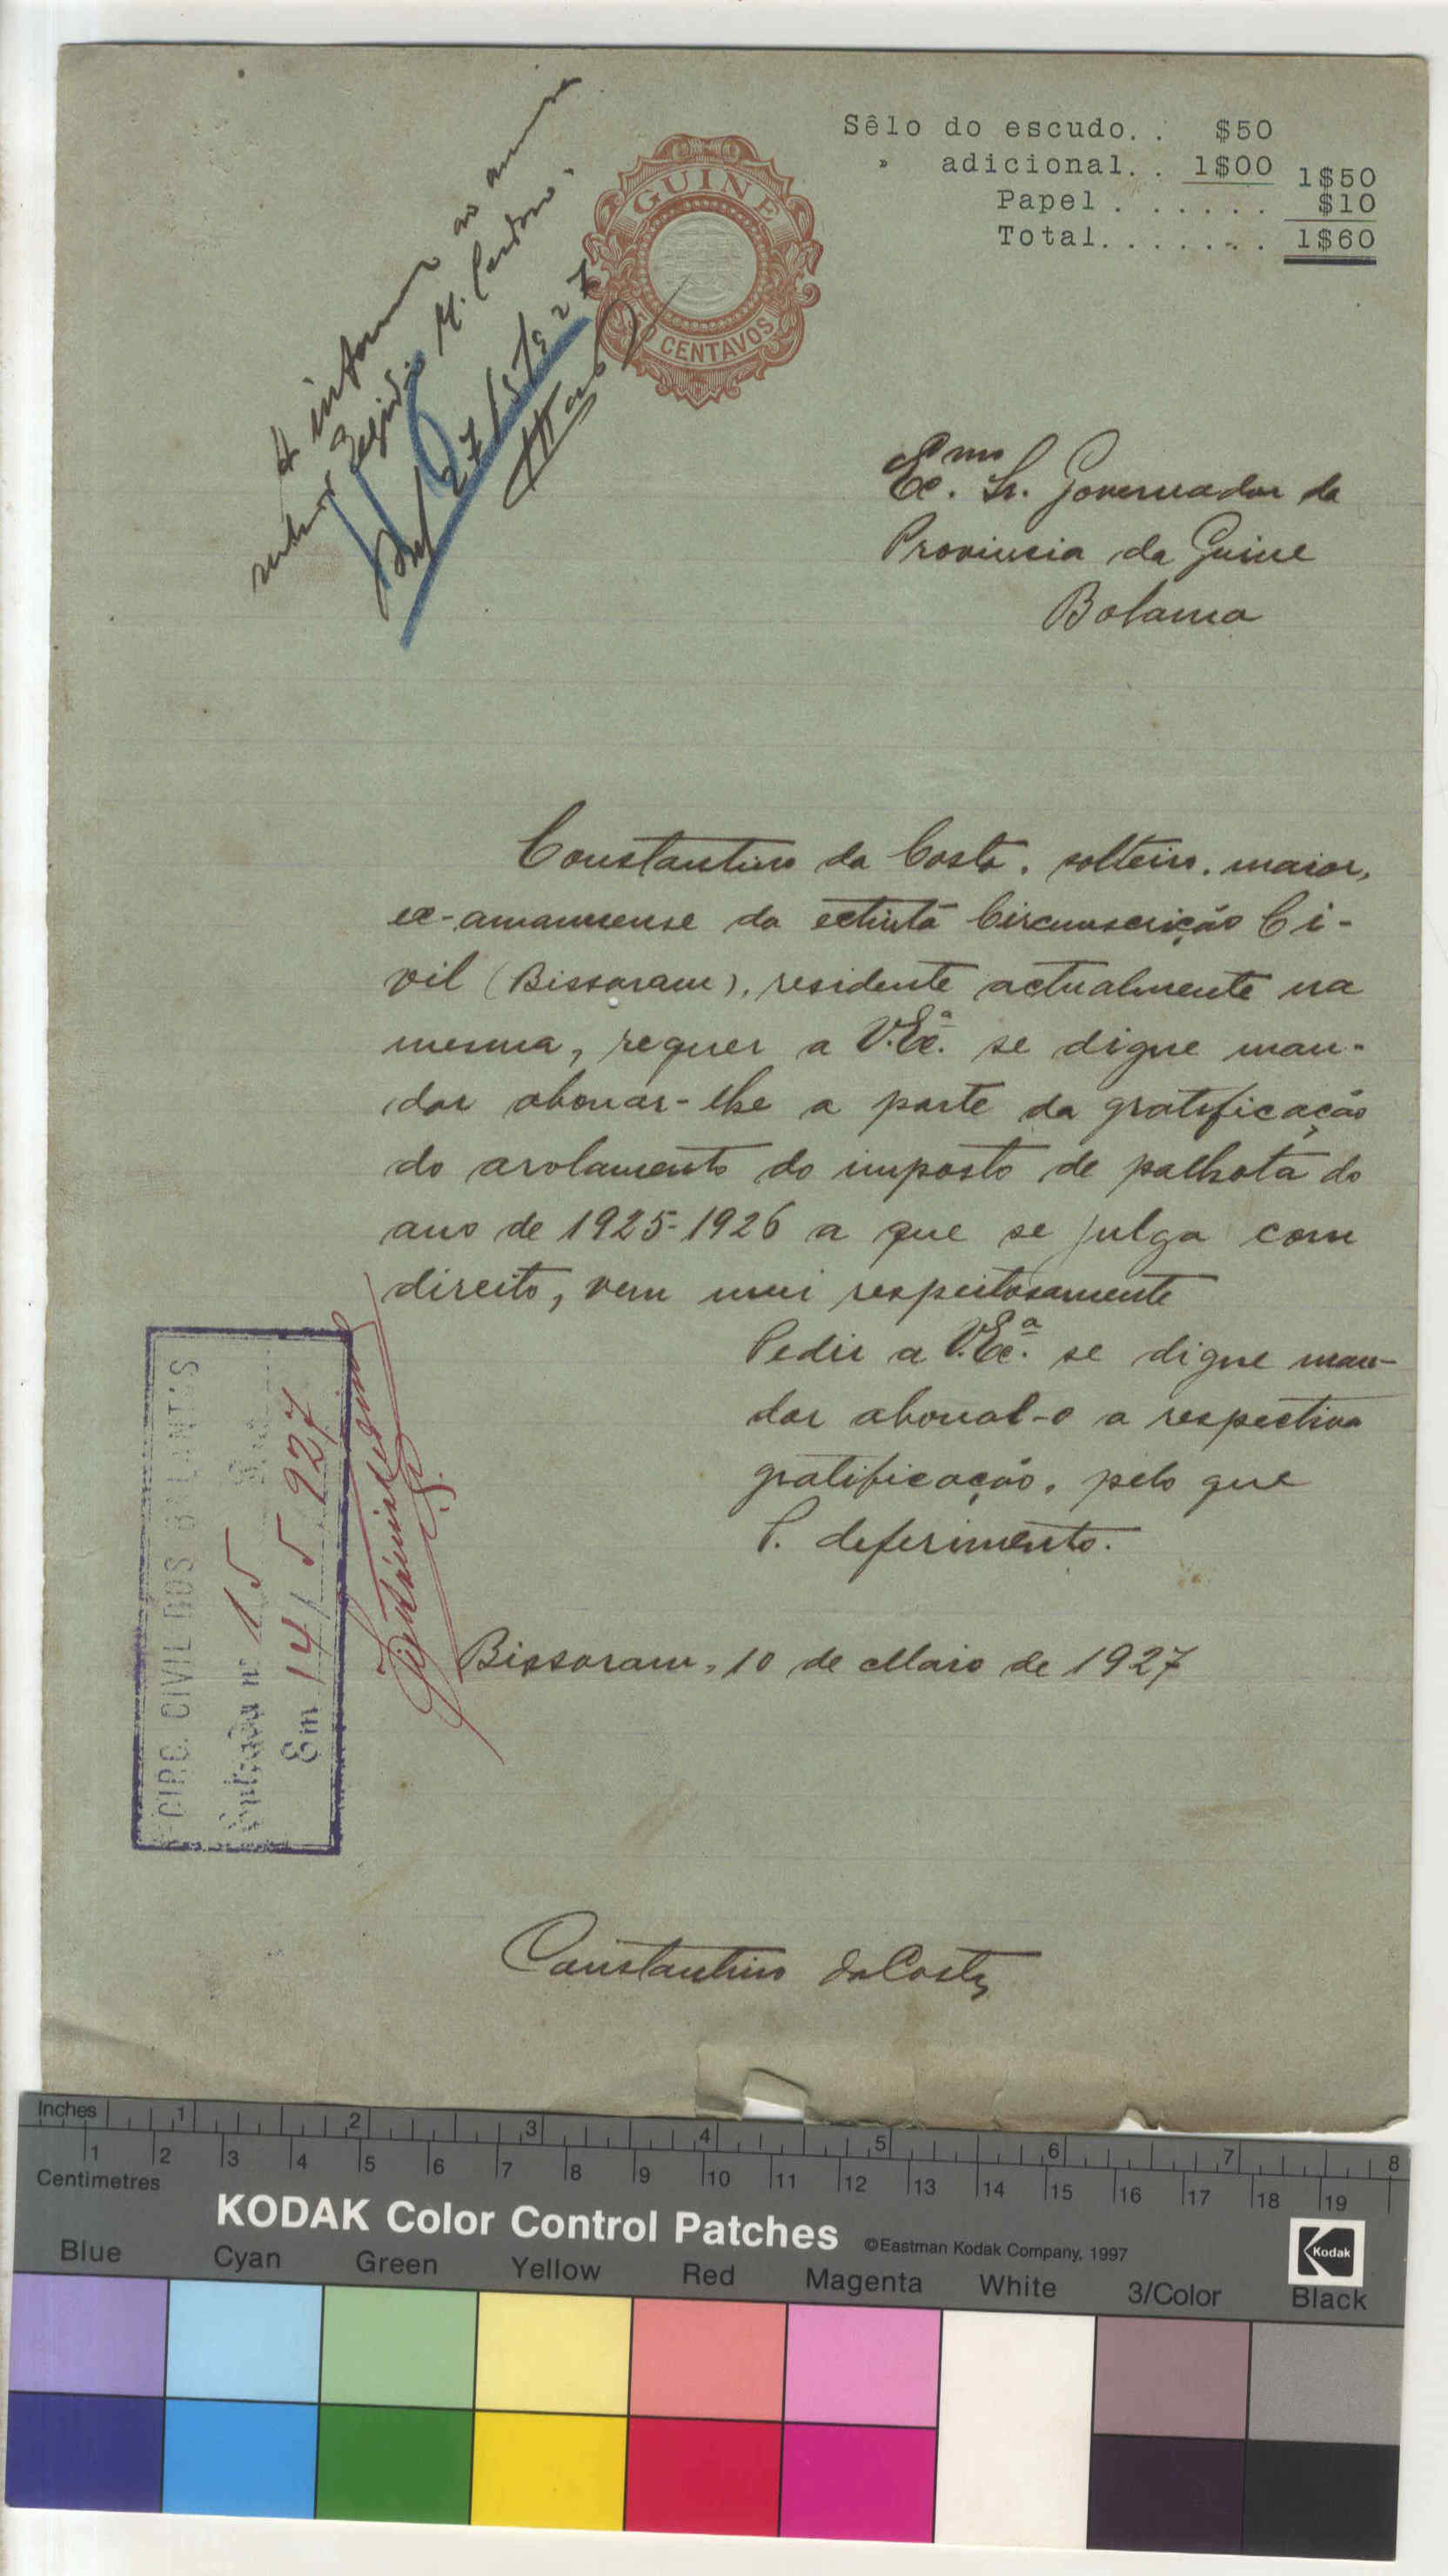 Sêlo do escudo. . $50
» adicional. . 1$00 1$50
Papel . . . . . . $10
Total. . . . . . . 1$60
GUINÉ
CENTAVOS
A informar ao
M. Cardoso.
27/5/927
Exmo. Sr. Governador da
Provincia da Guine
Bolama
Constantino da Costa, solteiro, maior,
ex-amanuense da extinta Circunscrição Ci-
vil (Bissoram), residente actualmente na
mesma, requer a V. Exª. se digne man-
dar abonar-lhe a parte da gratificação
do arolamento do imposto de palhota do
ano de 1925-1926 a que se julga com
direito, vem mui respeitosamente
Pedir a V. Exª. se digne man-
dar abonal-o a respectiva
gratificação, pelo que
P. deferimento.
Bissoram, 10 de Maio de 1927
Constantino da Costa
CIRC. CIVIL DOS BALANTAS
Entrada nº 15
Em 14/5/927
Inches 1 2 3 4 5 6 7 8
1 2 3 4 5 6 7 8 9 10 11 12 13 14 15 16 17 18 19
Centimetres
KODAK Color Control Patches ©Eastman Kodak Company, 1997 Kodak
Blue Cyan Green Yellow Red Magenta White 3/Color Black